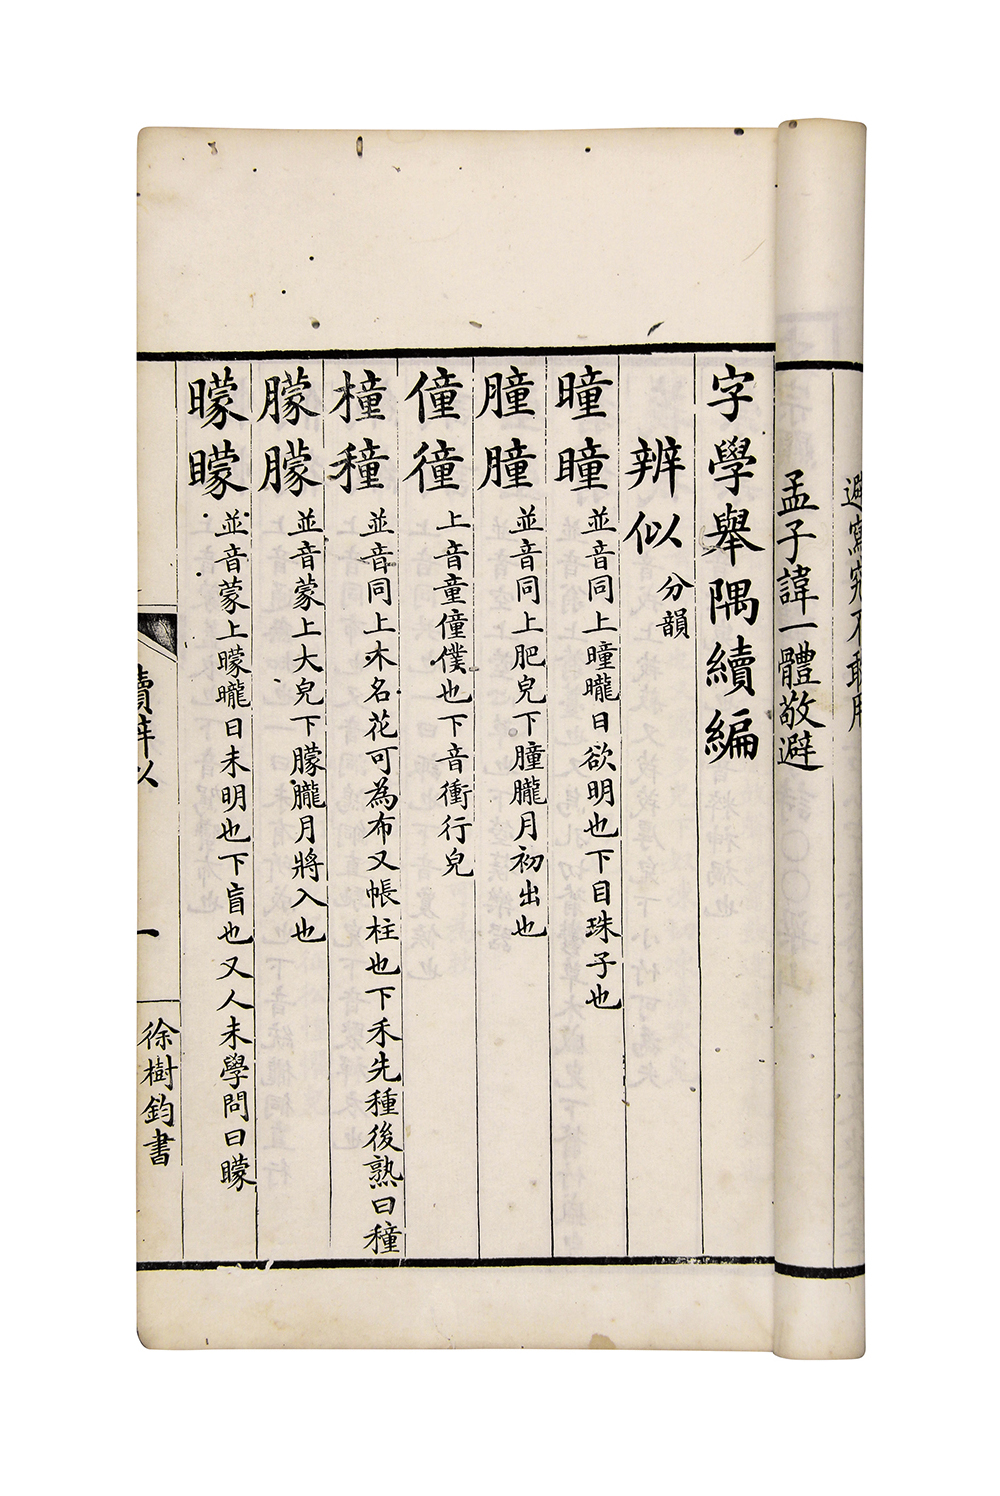 避寫究不敢用
孟子諱一體敬避
字學舉隅續編
辨似 分韻
曈瞳 並音同上曈曨日欲明也下目珠子也
膧朣 並音同上肥皃下朣朧月初出也
僮徸 上音童僮僕也下音衝行皃
橦穜 並音同上木名花可為布又帳柱也下禾先種後熟曰穜
朦朦 並音蒙上大皃下朦朧月將入也
曚矇 並音蒙上曚曨日未明也下盲也又人未學問曰矇
續辨似 一 徐樹鈞書